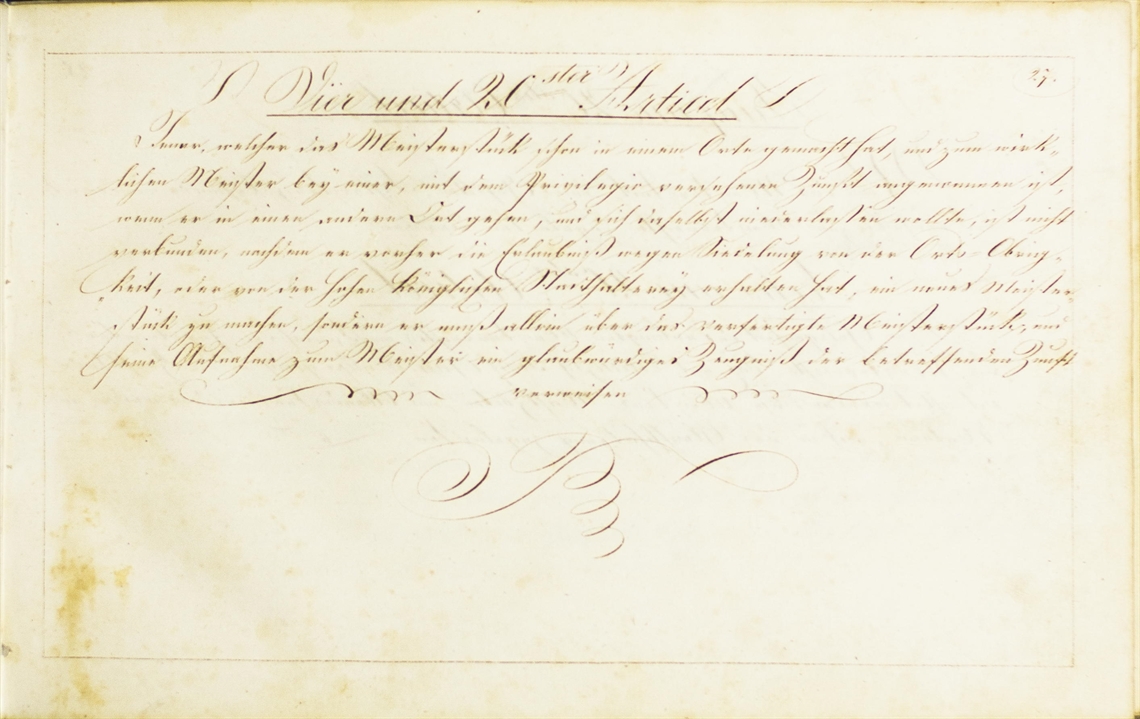 27.
Vier und 20ster Articel
Jener, welcher das Meisterstück schon in einem Orte gemacht hat, und zum wirk-
lichen Meister bey einer, mit dem Privilegio versehenen Zunft angenommen ist,
wenn er in einen andern Ort gehen, und sich daselbst niederlassen wollte, ist nicht
verbunden, nachdem er vorher die Erlaubniß wegen Siedelung von der Orts-Obrig-
keit, oder von der hohen königlichen Statthalterey erhalten hat, ein neues Meister-
stück zu machen, sondern er muß allein über das verfertigte Meisterstück, und
seine Aufnahme zum Meister ein glaubwürdiges Zeugniß der betreffenden Zunft
vorweisen